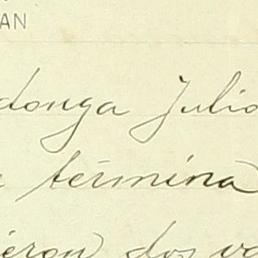 AN
donga Julio
termina
ieron dos va